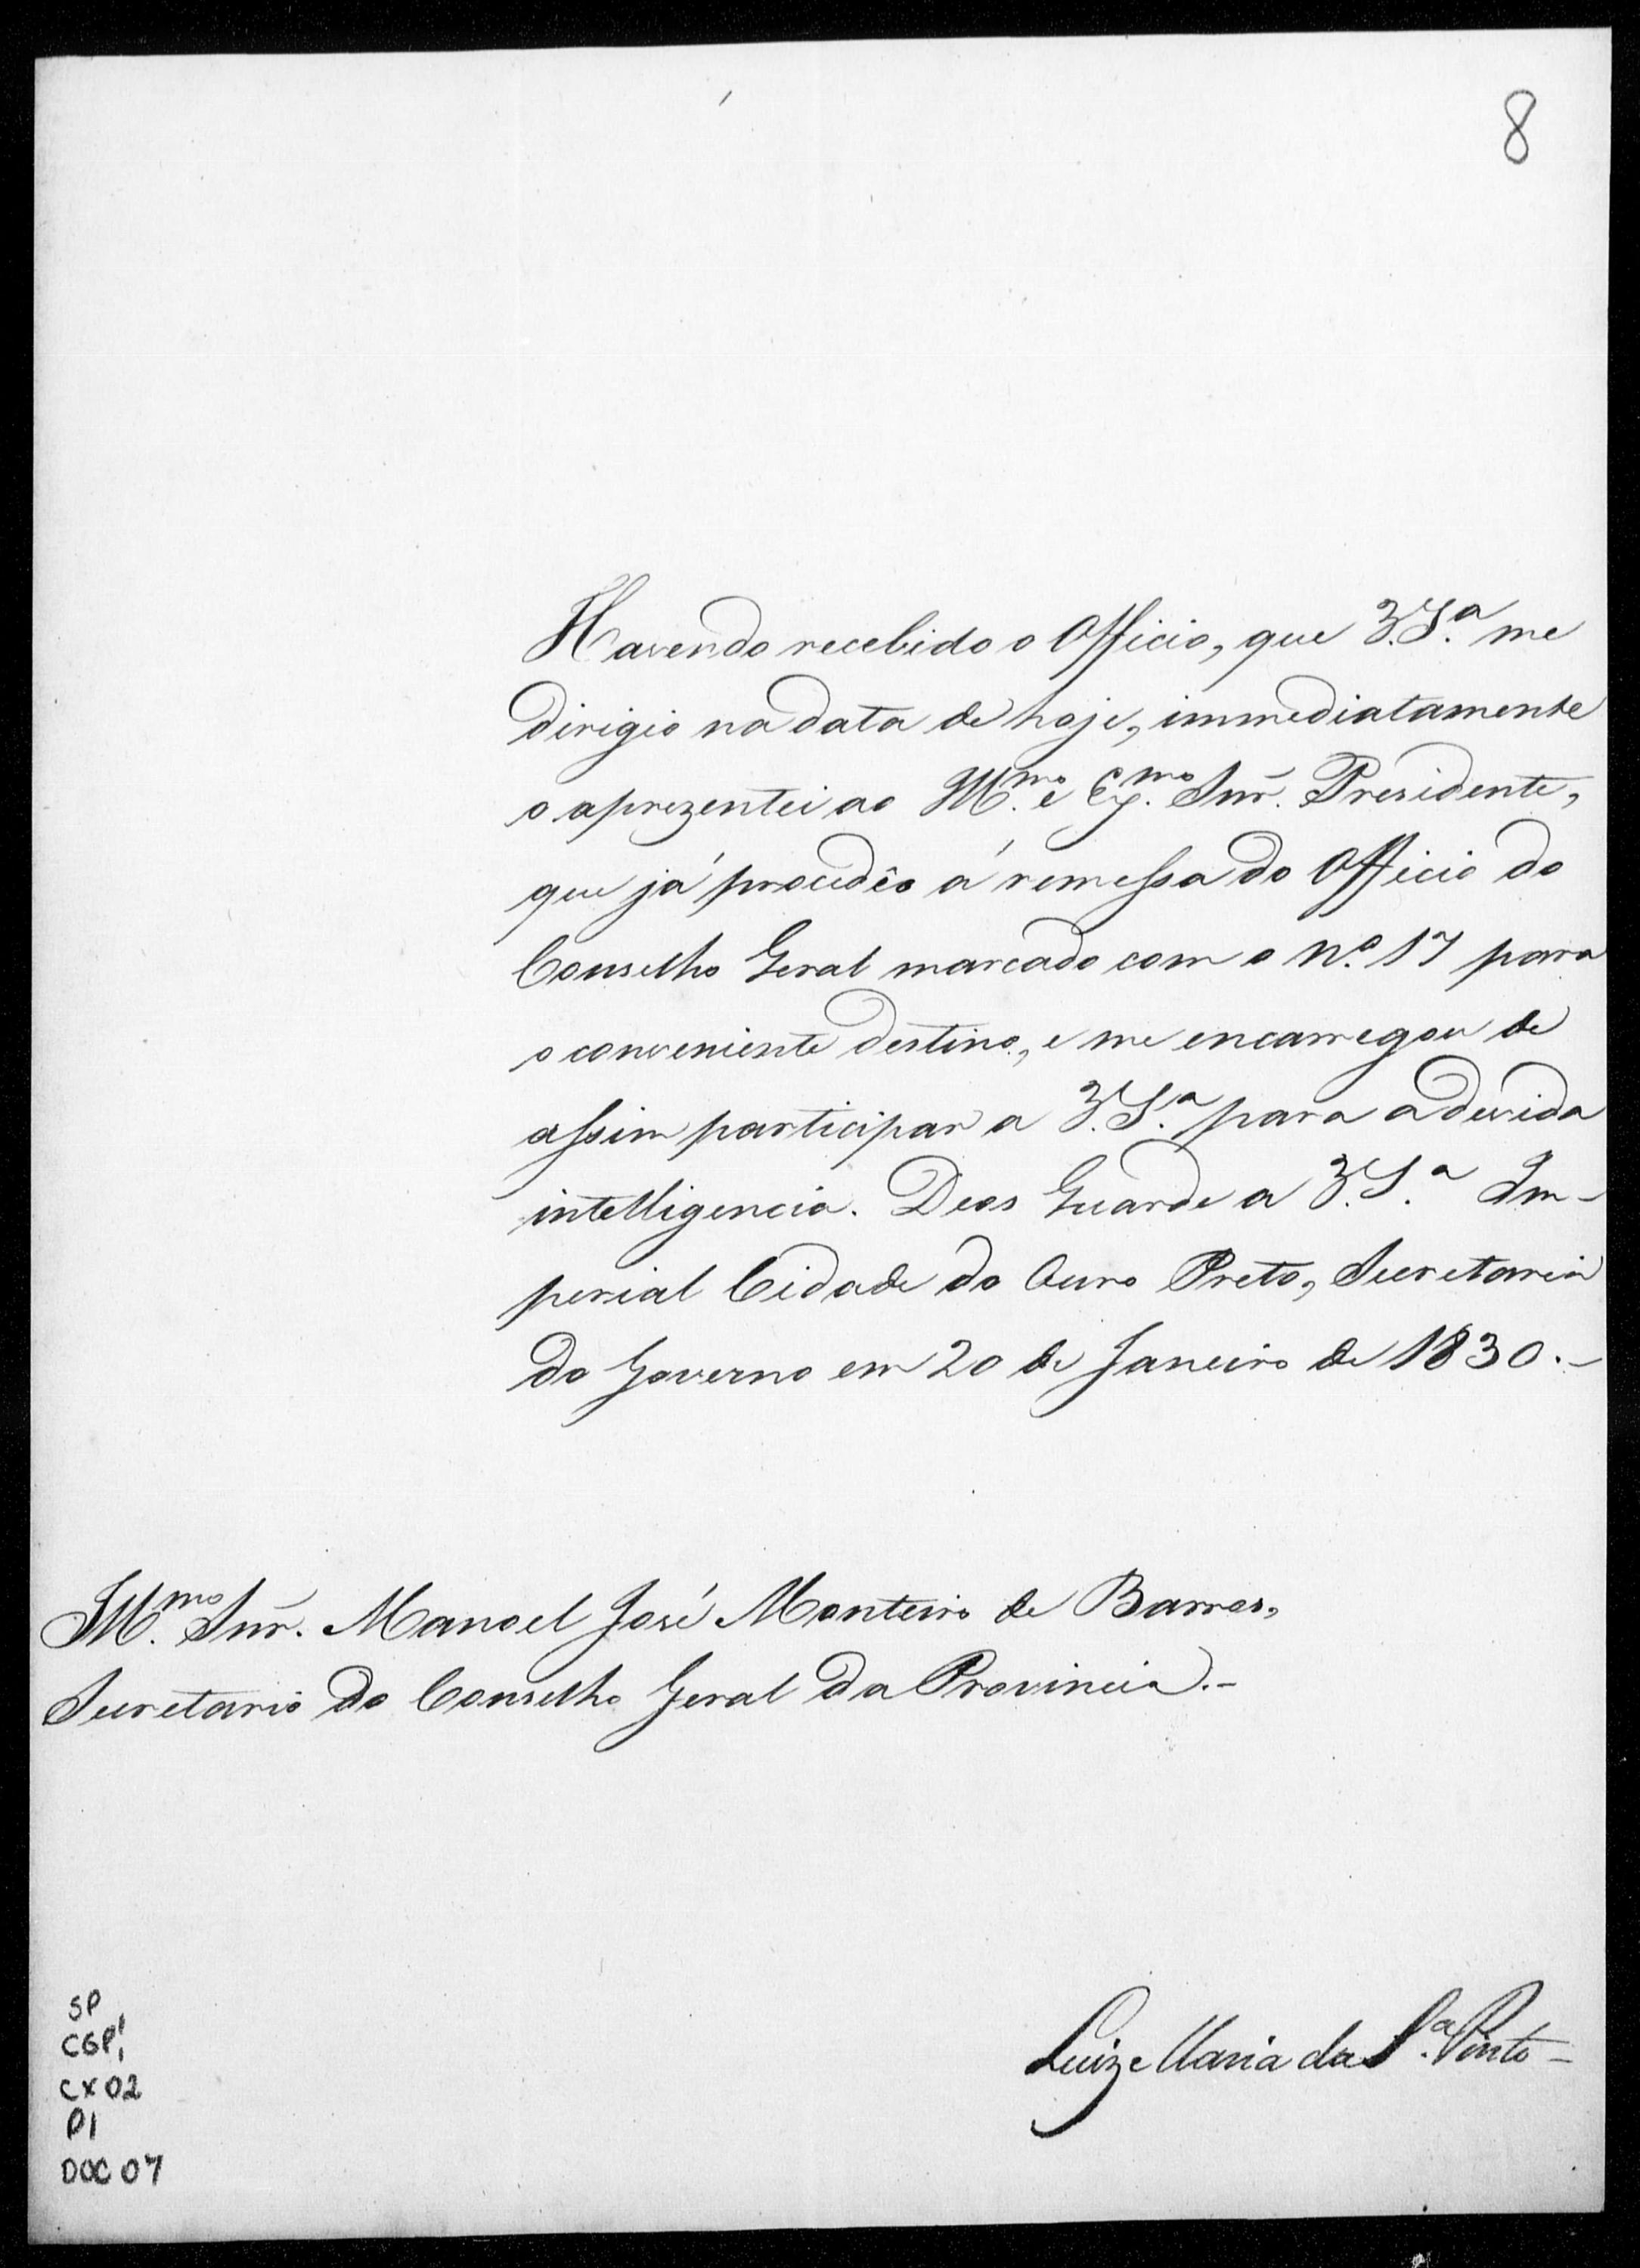 8
Havendo recebido o Officio, que V.S.ª me
dirigio na data de hoje, immediatamente
o aprezentei ao Ill.mo e Ex.mo Snr. Presidente,
que já procedêo á remessa do Officio do
Conselho Geral marcado com o N.º 17 para
o conveniente destino, e me encarregou de
assim participar a V.S.ª para a devida
intelligencia. Deos Guarde a V.S.ª Im-
perial Cidade do Ouro Preto, Secretaria
do Governo em 20 de Janeiro de 1830.-
Ill.mo Snr. Manoel José Monteiro de Barros,
Secretario do Conselho Geral da Provincia.-
Luiz Maria da S.ª Pinto -
SP
CGP1
CX 02
P1
DOC 07